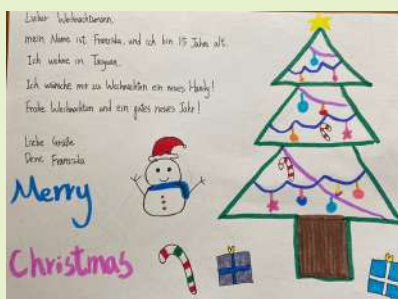 Lieber Weihnachtsmann,
mein Name ist Franziska, und ich bin 15 Jahre alt.
Ich wohne in
Ich wünsche mir zu Weihnachten ein neues Handy!
Frohe Weihnachten und ein gutes neues Jahr!
Liebe Grüße
Deine Franziska
Merry
Christmas